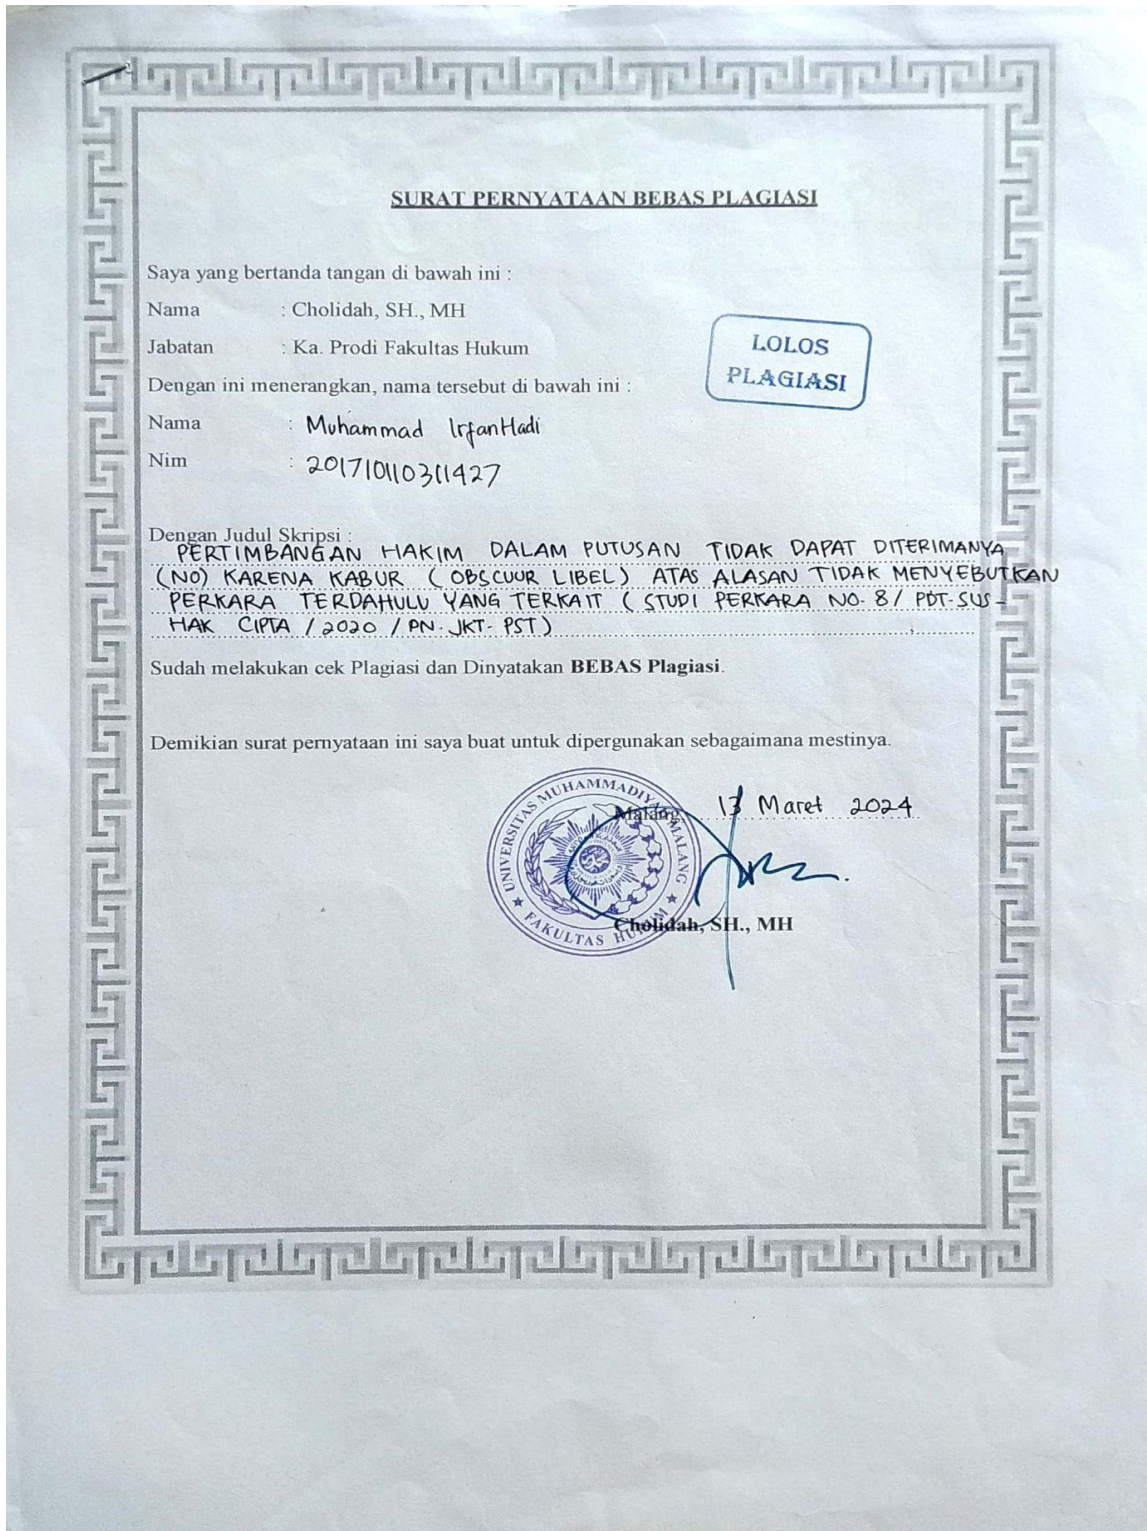 SURAT PERNYATAAN BEBAS PLAGIASI
Saya yang bertanda tangan di bawah ini :
Nama : Cholidah, SH., MH
Jabatan : Ka. Prodi Fakultas Hukum
LOLOS
PLAGIASI
Dengan ini menerangkan, nama tersebut di bawah ini :
Nama : Muhammad Irfan Hadi
Nim : 201710110311427
Dengan Judul Skripsi :
PERTIMBANGAN HAKIM DALAM PUTUSAN TIDAK DAPAT DITERIMANYA
(NO) KARENA KABUR (OBSCUUR LIBEL) ATAS ALASAN TIDAK MENYEBUTKAN
PERKARA TERDAHULU YANG TERKAIT (STUDI PERKARA NO. 8/ PDT-SUS-
HAK CIPTA / 2020 / PN. JKT- PST)
Sudah melakukan cek Plagiasi dan Dinyatakan BEBAS Plagiasi.
Demikian surat pernyataan ini saya buat untuk dipergunakan sebagaimana mestinya.
Malang, 13 Maret 2024
UNIVERSITAS MUHAMMADIYAH MALANG
FAKULTAS HUKUM
Cholidah, SH., MH